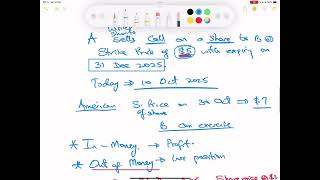 writes
shorts
A Sells Call on a share to B @
Strike Price of $5 with expiry on
31 Dec 2025.
Today → 10 Oct 2025
American Si Price on 30 Oct ⇒ $7
of share
B Can exercise
* In-Money → Profit.
* Out of Money → loss position
Share price